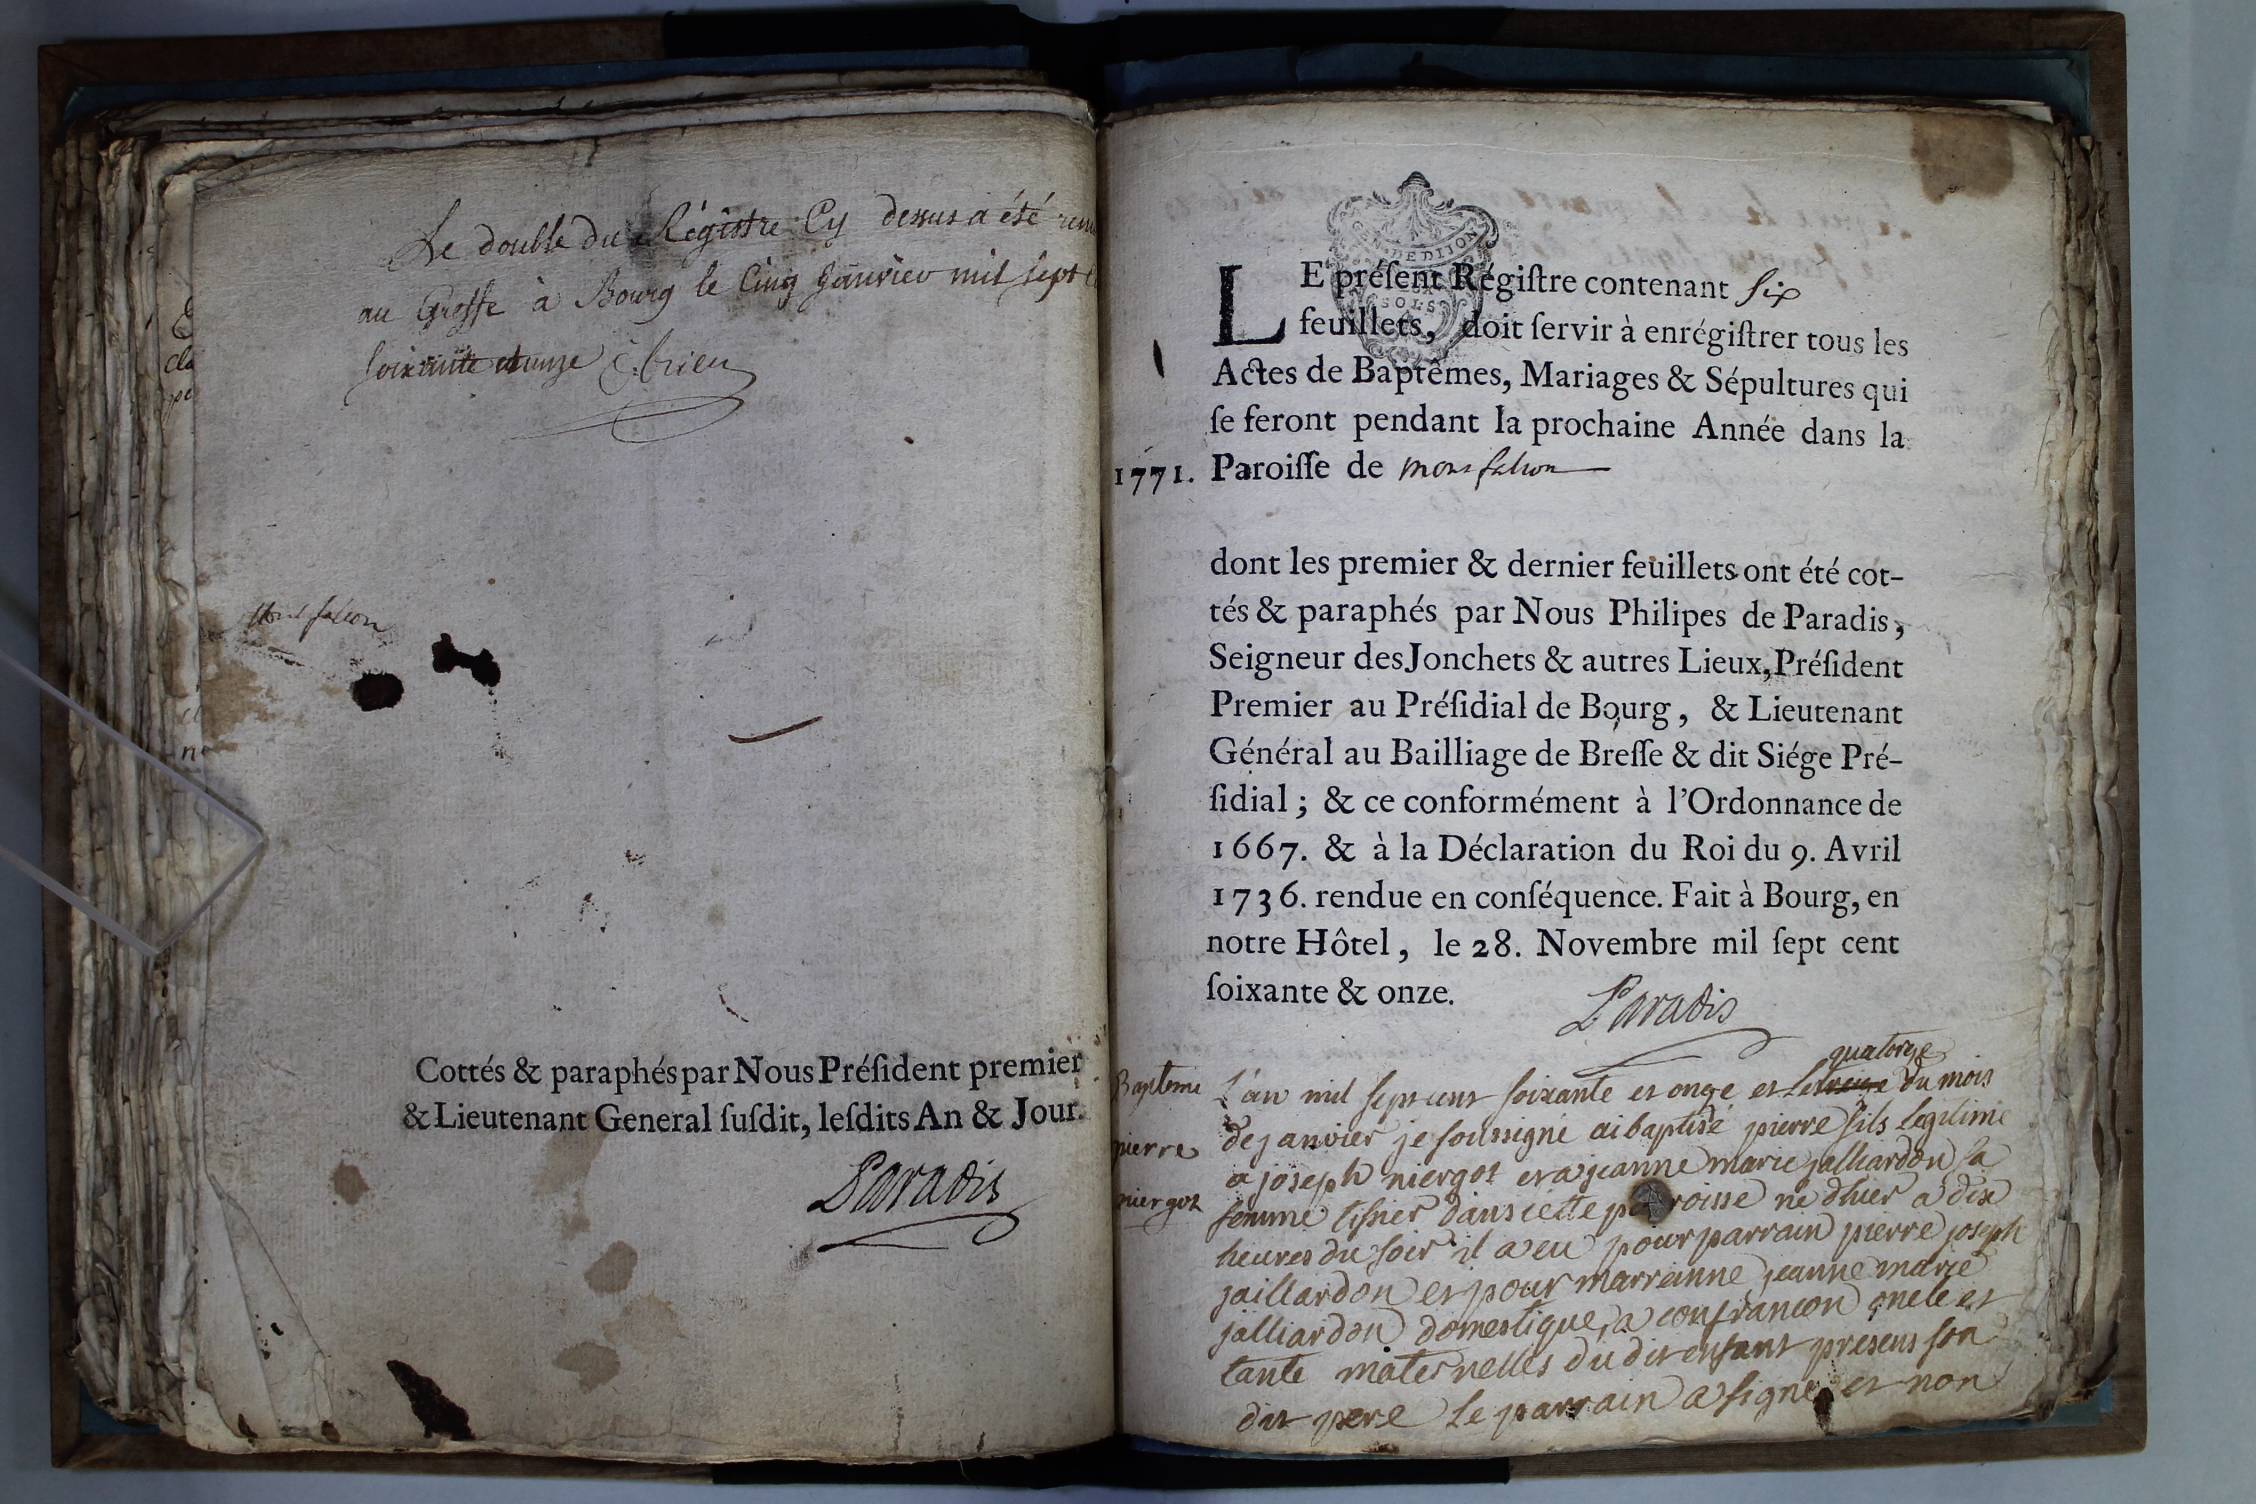 Le double du Régistre Cy dessus a été
au Greffe à Bourg le Cinq Janvier mil sept
soixante et unze
Montfalcon
Cottés & paraphés par Nous Préſident premier
& Lieutenant General ſuſdit, leſdits An & Jour.
Paradis
GEN. DE DIJON
SOLS
LE préſent Régiſtre contenant six
feuillets, doit ſervir à enrégiſtrer tous les
Actes de Baptêmes, Mariages & Sépultures qui
ſe feront pendant la prochaine Année dans la
1771. Paroiſſe de montfalcon
dont les premier & dernier feuillets ont été cot-
tés & paraphés par Nous Philipes de Paradis,
Seigneur des Jonchets & autres Lieux, Préſident
Premier au Préſidial de Bourg, & Lieutenant
Général au Bailliage de Breſſe & dit Siége Pré-
ſidial ; & ce conformément à l'Ordonnance de
1667. & à la Déclaration du Roi du 9. Avril
1736. rendue en conſéquence. Fait à Bourg, en
notre Hôtel, le 28. Novembre mil ſept cent
ſoixante & onze.
Paradis
Bapteme
pierre
niergot
quatorze
L'an mil sept cent soixante et onze et le treize du mois
de janvier je soussigné ai baptisé pierre fils legitime
a joseph niergot et a jeanne marie jalliardon sa
femme tissier dans cette paroisse né d'hier a dix
heures du soir il a eu pour parrain pierre joseph
jaillardon et pour marrainne jeanne marie
jalliardon domestique a confrancon oncle et
tante maternelles du dit enfant presens son
dit pere le parrain a signé et non